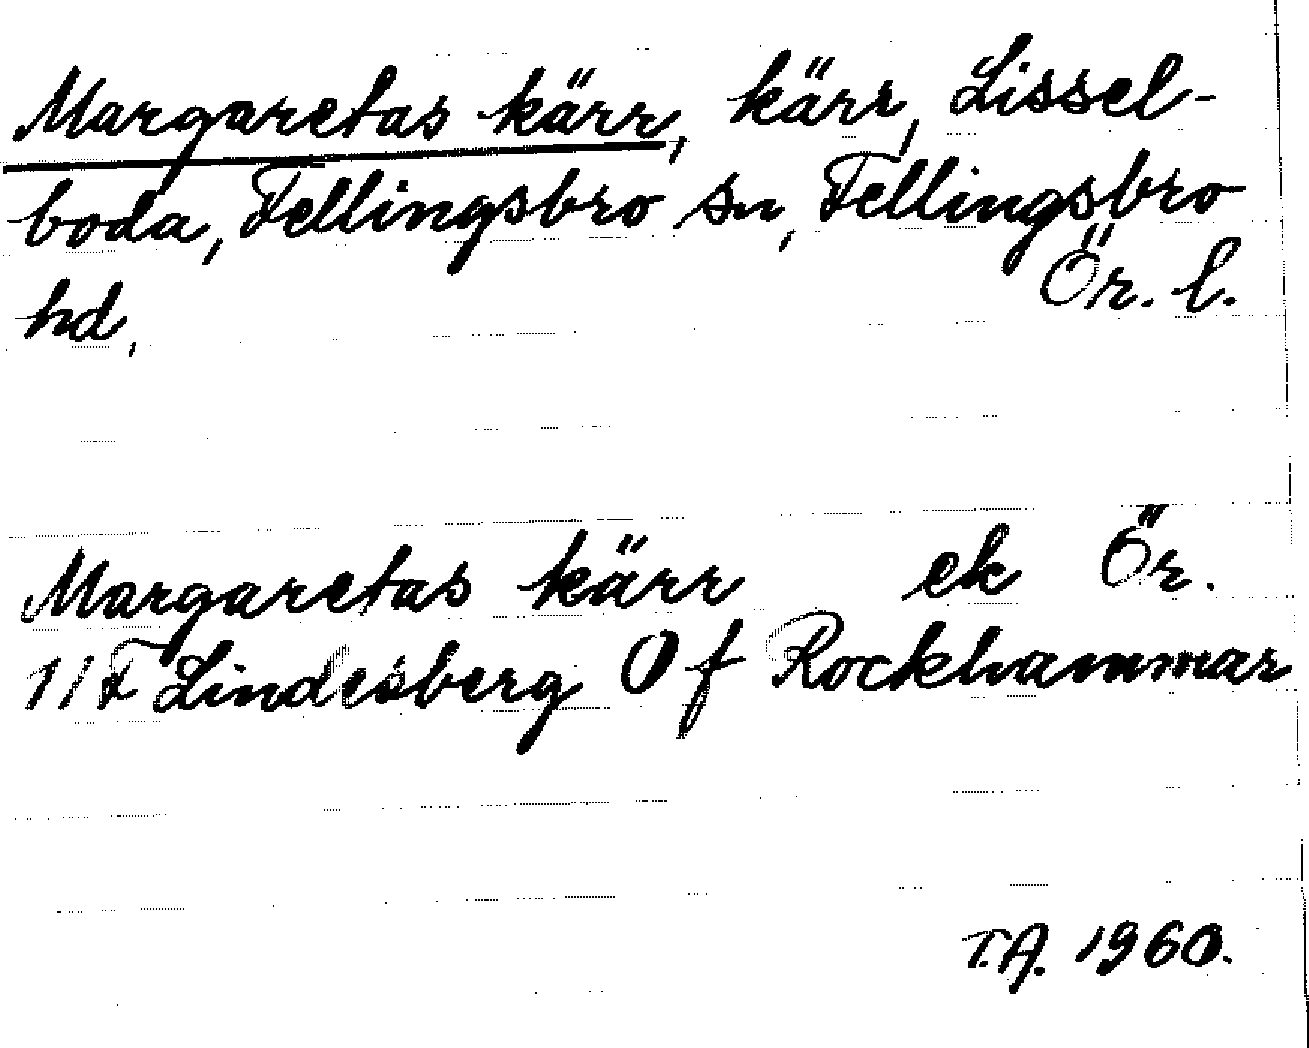 Margaretas kärr, kärr, Lissel-
boda, Fellingsbro sn, Fellingsbro
hd, Ör. l.
Margaretas kärr ek Ör.
1/F Lindesberg Of Rockhammar
T.A. 1960.